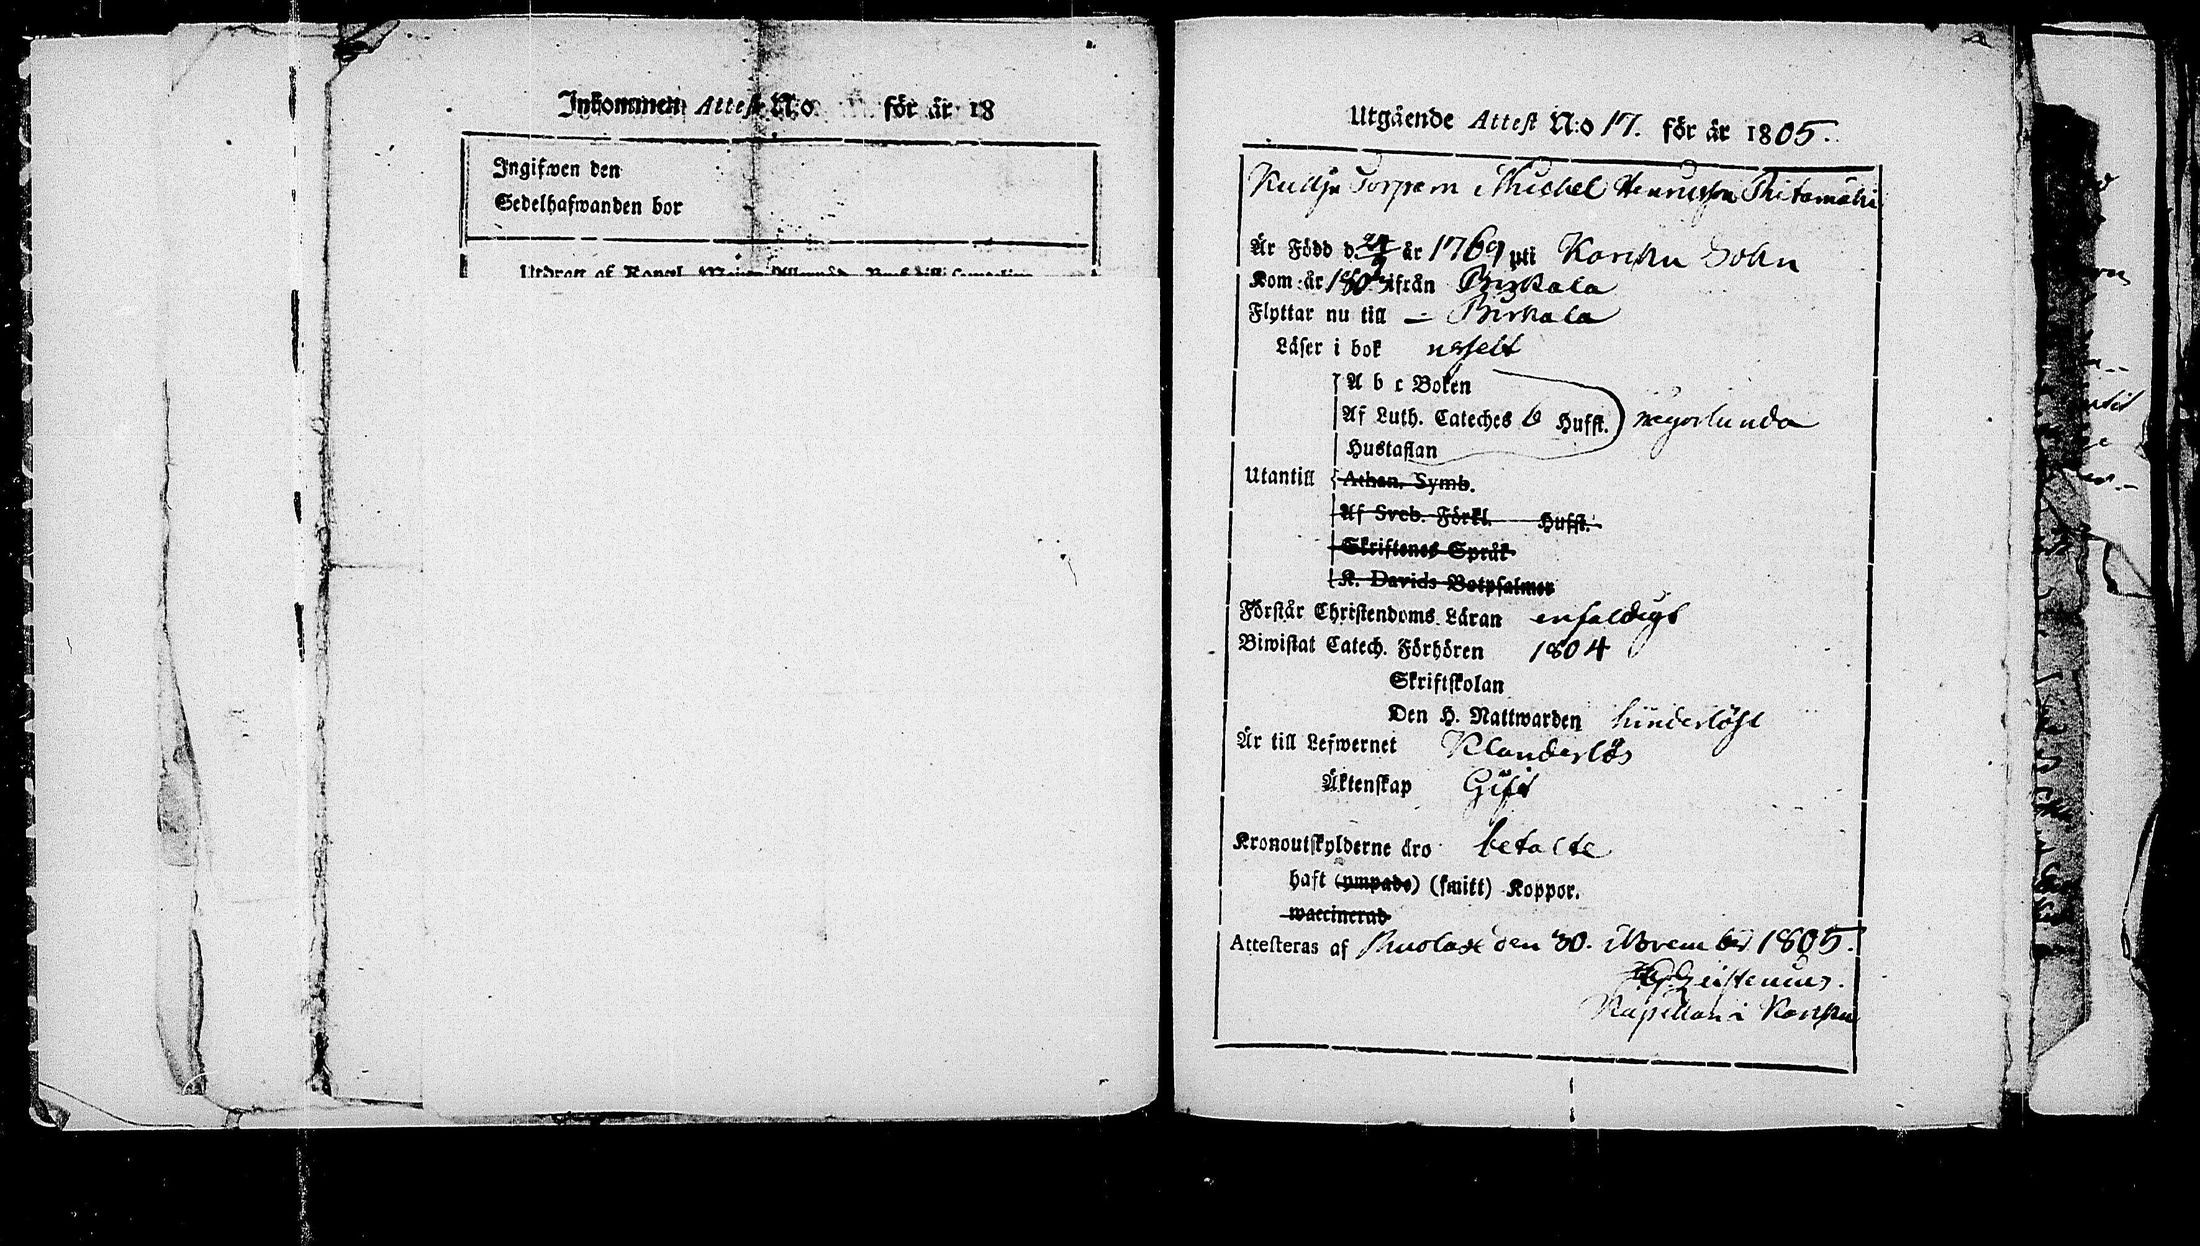 Inkommen Attest N:o för år 18
Ingifwen den
Sedelhafwanden bor
Utdrag af Kongl.
Utgående Attest N:o 17. för år 1805.
Torparn Michel Henricsson
Är Född d. 29/9 år 1769 uti Karkku Sokn
Kom år 1803 ifrån Birkala
Flyttar nu till – Birkala
Läser i bok uselt
A b c Boken
Af Luth. Cateches 6 Hufst. någorlunda
Hustaflan
Utantill
Athan. Symb.
Af Sveb. Förkl. Hufst.
Skriftenes Språk
K. Davids Botpsalmer
Förstår Christendoms Läran enfaldigt
Biwistat Catech. Förhören 1804
Skriftskolan
Den H. Nattwarden hinderlöst
Är till Lefwernet Klanderlös
Äktenskap Gift
Kronoutskylderne äro betalte
haft (ympade) (smitt) Koppor.
waccinerad
Attesteras af den 30. November 1805.
Kapellan i Karkku